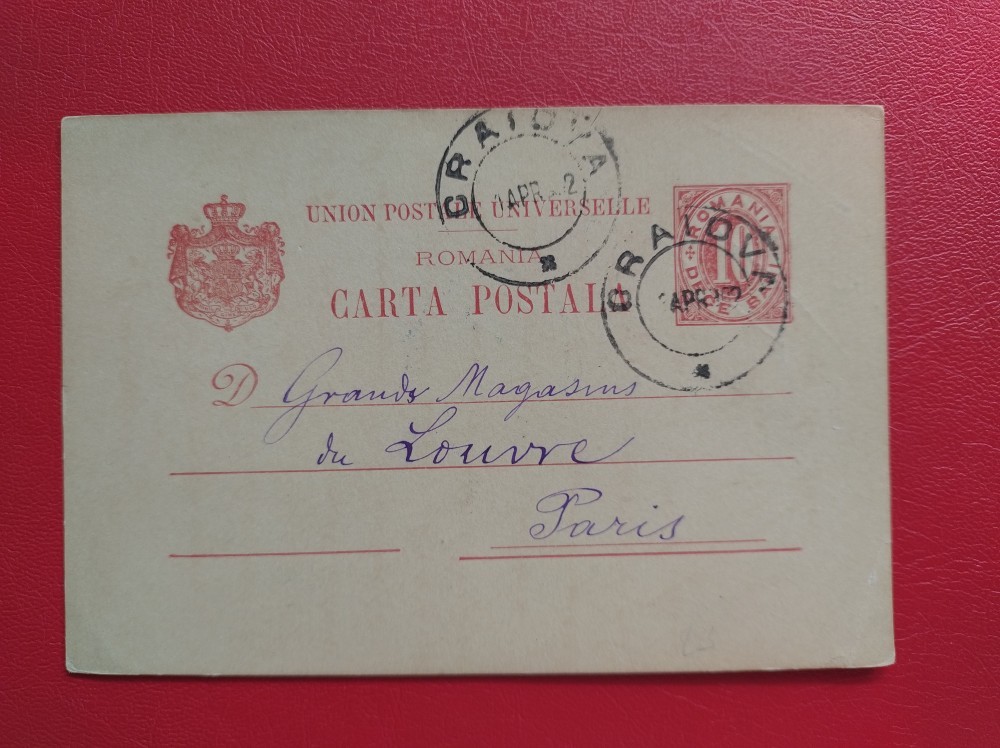 CRAIOVA
APR
UNION POSTALE UNIVERSELLE
ROMANIA
CARTA POSTALA
ROMANIA
10
DECE BANI
CRAIOVA
APR
D Grands Magasins
du Louvre
Paris